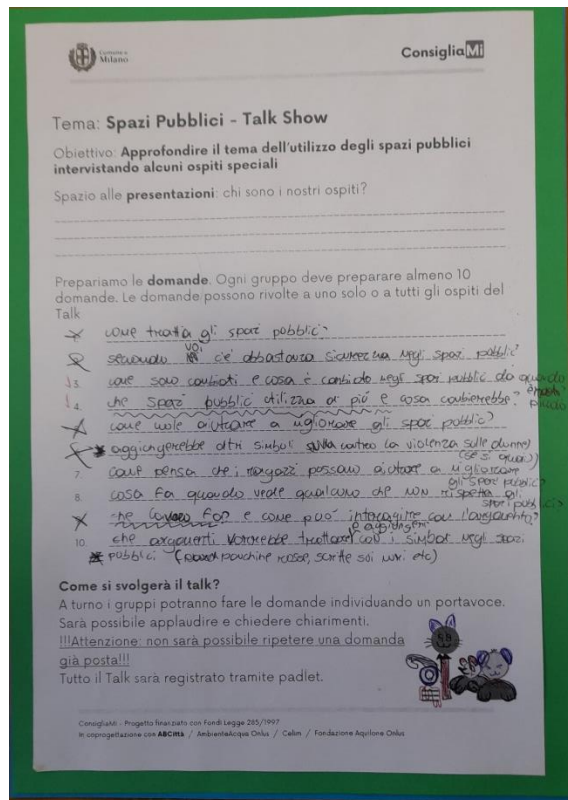 Comune di
Milano
ConsigliaMi
Tema: Spazi Pubblici - Talk Show
Obiettivo: Approfondire il tema dell'utilizzo degli spazi pubblici
intervistando alcuni ospiti speciali
Spazio alle presentazioni: chi sono i nostri ospiti?
Prepariamo le domande. Ogni gruppo deve preparare almeno 10
domande. Le domande possono rivolte a uno solo o a tutti gli ospiti del
Talk
come tratta gli spazi pubblici?
secondo voi c'è abbastanza sicurezza negli spazi pubblici?
3. come sono cambiati e cosa è cambiato negli spazi pubblici da quando
4. che spazi pubblici utilizza di più e cosa cambierebbe? piccolo
come vuole aiutare a migliorare gli spazi pubblici?
aggiungerebbe altri simboli contro la violenza sulle donne?
(se si quali)
7. come pensa che i ragazzi possano aiutare a migliorare
gli spazi pubblici?
8. cosa fa quando vede qualcuno che non rispetta gli
spazi pubblici?
che lavoro fa? e come può interagire con l'argomento?
e aggiungere
10. che argomenti vorrebbe trattare con i simboli negli spazi
pubblici (panchine rosse, scritte sui muri etc)
Come si svolgerà il talk?
A turno i gruppi potranno fare le domande individuando un portavoce.
Sarà possibile applaudire e chiedere chiarimenti.
!!!Attenzione: non sarà possibile ripetere una domanda
già posta!!!
Tutto il Talk sarà registrato tramite padlet.
ConsigliaMi - Progetto finanziato con Fondi Legge 285/1997
In coprogettazione con ABCittà / AmbienteAcqua Onlus / Celim / Fondazione Aquilone Onlus